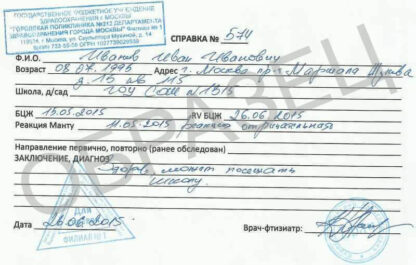 ГОСУДАРСТВЕННОЕ БЮДЖЕТНОЕ УЧРЕЖДЕНИЕ
ЗДРАВООХРАНЕНИЯ г. МОСКВЫ
"ГОРОДСКАЯ ПОЛИКЛИНИКА №212 ДЕПАРТАМЕНТА
ЗДРАВООХРАНЕНИЯ ГОРОДА МОСКВЫ" Филиал № 1
г. Москва, ул. Скульптора Мухиной, д. 14
СПРАВКА № 574
Ф.И.О. Иванов Иван Иванович
Возраст 08.07.1995 Адрес г. Москва пр. Маршала Жукова
д. 15 кв. 115
Школа, д/сад ГОУ СОШ № 1315
БЦЖ 13.05.2015 RV БЦЖ 26.06.2015
Реакция Манту 11.05.2015 реакция отрицательная
Направление первично, повторно (ранее обследован)
ЗАКЛЮЧЕНИЕ, ДИАГНОЗ
Здоров, может посещать
школу.
ДЛЯ
ФИЛИАЛ № 1
Дата 26.06.2015 Врач-фтизиатр:
ОБРАЗЕЦ